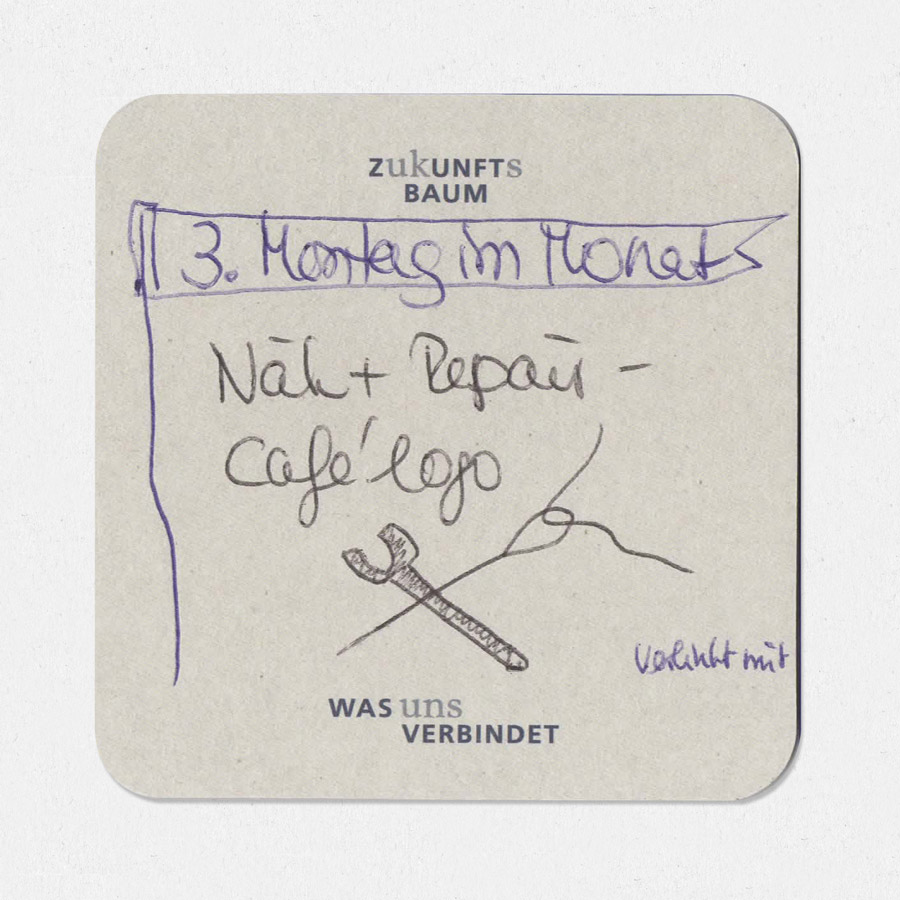 ZukUNFTs
BAUM
3. Montag im Monat
Näh + Repair -
Café logo
Verlinkt mit
WAS uns
VERBINDET